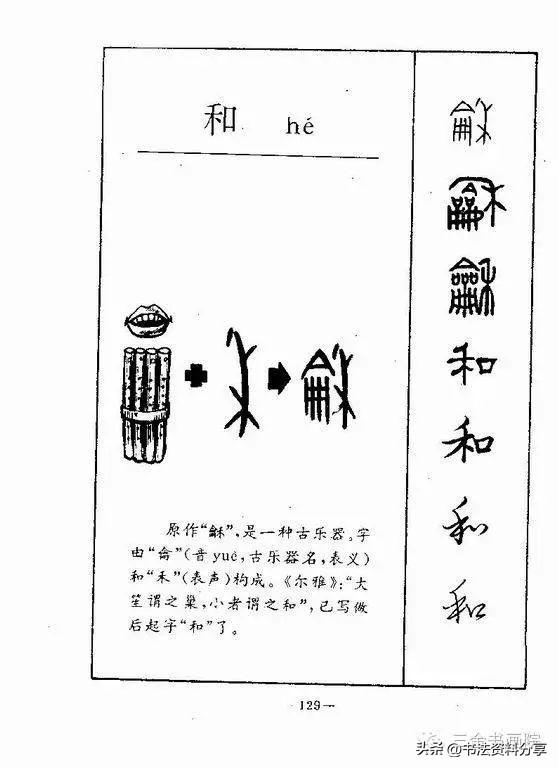 和 hé
原作“龢”，是一种古乐器。字
由“龠”（音 yuè，古乐器名，表义）
和“禾”（表声）构成。《尔雅》：“大
笙谓之巢，小者谓之和”，已写做
后起字“和”了。
龢
龢
龢
和
和
和
和
129—
三余书画院
头条 @书法资料分享